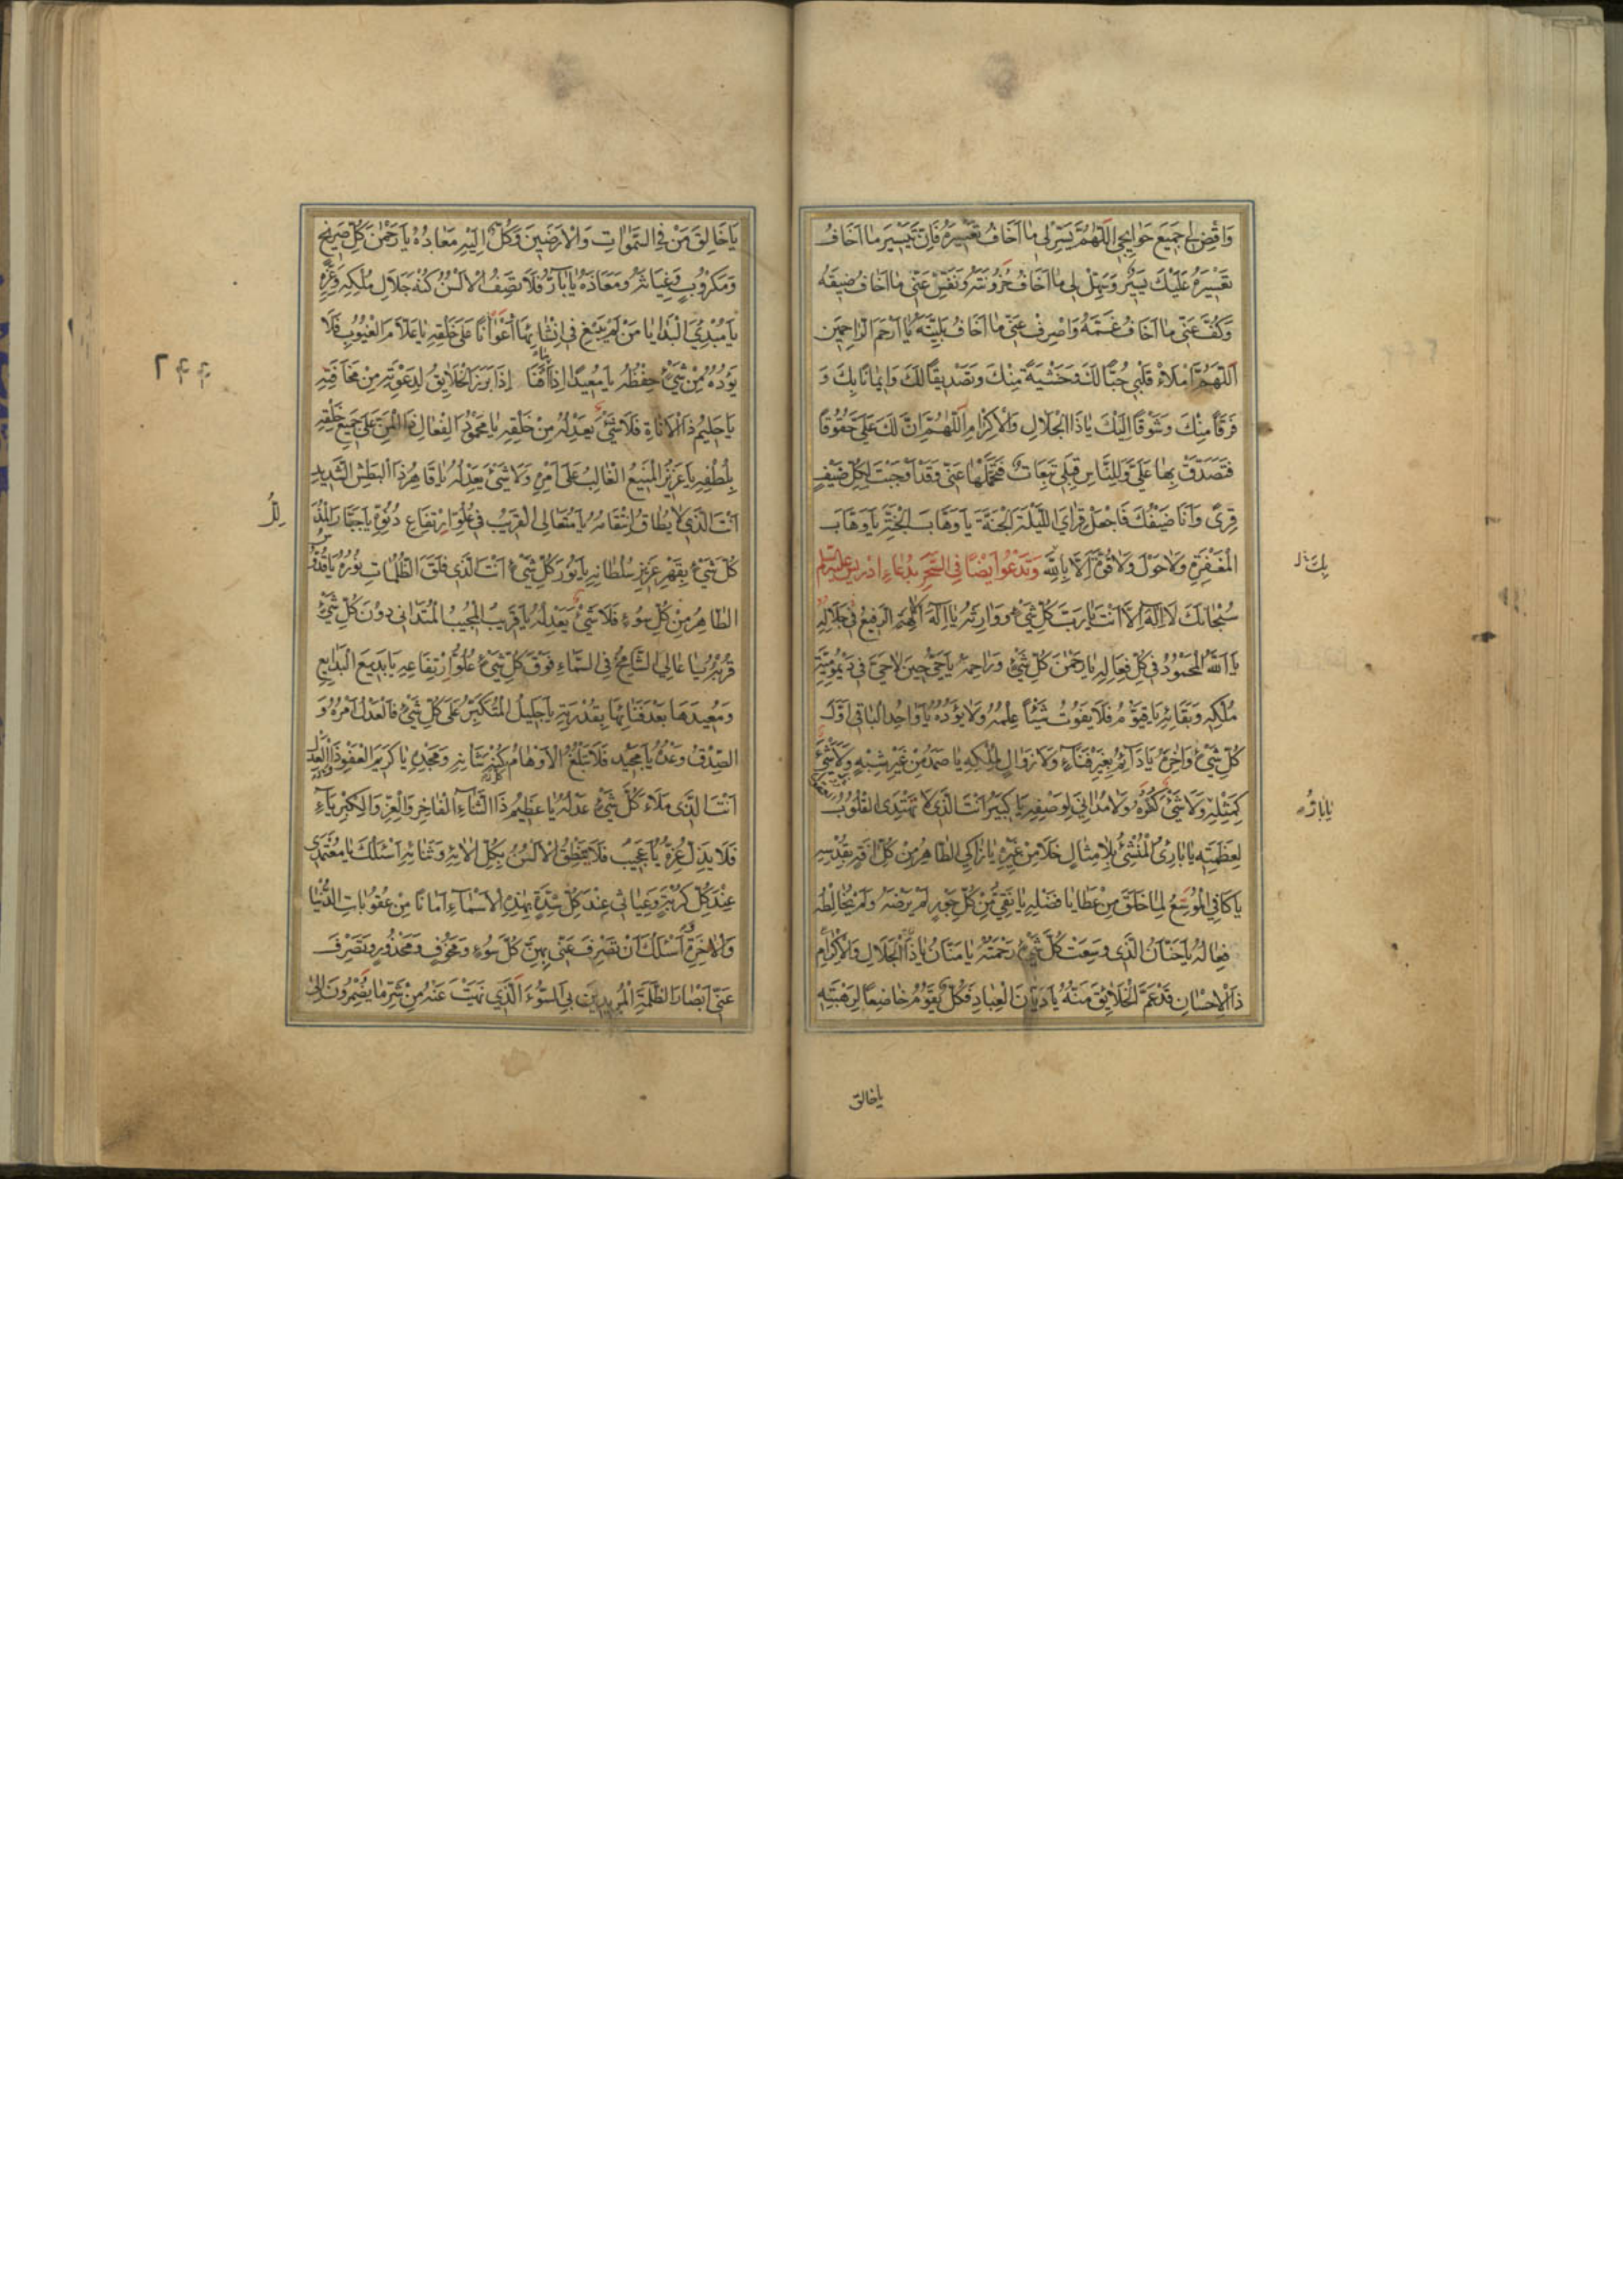 وَاقْضِ لِي جَمِيعَ حَوَائِجِي اَللّٰهُمَّ يَسِّرْ لِي مَا اَخَافُ تَعْسِيرَهُ فَاِنَّ تَيْسِيرَ مَا اَخَافُ
تَعْسِيرَهُ عَلَيْكَ يَسِيرٌ وَسَهِّلْ لِي مَا اَخَافُ حُزُونَتَهُ وَنَفِّسْ عَنِّي مَا اَخَافُ ضِيقَهُ
وَكُفَّ عَنِّي مَا اَخَافُ غَمَّهُ وَاصْرِفْ عَنِّي مَا اَخَافُ بَلِيَّتَهُ يَا اَرْحَمَ الرَّاحِمِينَ
اَللّٰهُمَّ امْلَاْ قَلْبِي حُبًّا لَكَ وَخَشْيَةً مِنْكَ وَتَصْدِيقًا لَكَ وَاِيمَانًا بِكَ وَ
فَرَقًا مِنْكَ وَشَوْقًا اِلَيْكَ يَا ذَا الْجَلَالِ وَالْاِكْرَامِ اَللّٰهُمَّ اِنَّ لَكَ عَلَيَّ حُقُوقًا
فَتَصَدَّقْ بِهَا عَلَيَّ وَلِلنَّاسِ قِبَلِي تَبِعَاتٌ فَتَحَمَّلْهَا عَنِّي وَقَدْ اَوْجَبْتَ لِكُلِّ ضَيْفٍ
قِرًى وَاَنَا ضَيْفُكَ فَاجْعَلْ قِرَايَ اللَّيْلَةَ الْجَنَّةَ يَا وَهَّابَ الْجَنَّةِ يَا وَهَّابَ
الْمَغْفِرَةِ وَلَا حَوْلَ وَلَا قُوَّةَ اِلَّا بِاللّٰهِ وَتَدْعُوا اَيْضًا فِي السَّحَرِ بِدُعَاءِ اِدْرِيسَ عَلَيْهِ السَّلَام
سُبْحَانَكَ لَا اِلٰهَ اِلَّا اَنْتَ يَا رَبَّ كُلِّ شَيْءٍ وَوَارِثَهُ يَا اِلٰهَ الْاٰلِهَةِ الرَّفِيعُ فِي جَلَالِهِ
يَا اَللّٰهُ الْمَحْمُودُ فِي كُلِّ فِعَالِهِ يَا رَحْمٰنَ كُلِّ شَيْءٍ وَرَاحِمَهُ يَا حَيُّ حِينَ لَا حَيَّ فِي دَيْمُومِيَّةِ
مُلْكِهِ وَبَقَائِهِ يَا قَيُّومُ فَلَا يَفُوتُ شَيْئًا عِلْمُهُ وَلَا يَؤُدُهُ يَا وَاحِدُ الْبَاقِي اَوَّلَ
كُلِّ شَيْءٍ وَاٰخِرَهُ يَا دَائِمُ بِغَيْرِ فَنَاءٍ وَلَا زَوَالٍ لِمُلْكِهِ يَا صَمَدُ مِنْ غَيْرِ شِبْهٍ وَلَا شَيْءَ
كَمِثْلِهِ وَلَا شَيْءَ كُفْوُهُ وَلَا مُدَانِيَ لِوَصْفِهِ يَا كَبِيرُ اَنْتَ الَّذِي لَا تَهْتَدِي الْقُلُوبُ
لِعَظَمَتِهِ يَا بَارِئُ الْمُنْشِئُ بِلَا مِثَالٍ خَلَا مِنْ غَيْرِهِ يَا زَاكِي الطَّاهِرُ مِنْ كُلِّ اٰفَةٍ بِقُدْسِهِ
يَا كَافِي الْمُوسِعُ لِمَا خَلَقَ مِنْ عَطَايَا فَضْلِهِ يَا نَقِيُّ مِنْ كُلِّ جَوْرٍ لَمْ يَرْضَهُ وَلَمْ يُخَالِطْهُ
فِعَالُهُ يَا حَنَّانُ الَّذِي وَسِعَتْ كُلَّ شَيْءٍ رَحْمَتُهُ يَا مَنَّانُ يَا ذَا الْجَلَالِ وَالْاِكْرَامِ
ذَا الْاِحْسَانِ قَدْ عَمَّ الْخَلَائِقَ مَنُّهُ يَا دَيَّانَ الْعِبَادِ فَكُلٌّ يَقُومُ خَاضِعًا لِرَهْبَتِهِ
يا خالق
يَا خَالِقَ مَنْ فِي السَّمٰوَاتِ وَالْاَرَضِينَ وَكُلٌّ اِلَيْهِ مَعَادُهُ يَا رَحْمٰنَ كُلِّ صَرِيخٍ
وَمَكْرُوبٍ وَغِيَاثَهُ وَمَعَاذَهُ يَا بَارُّ فَلَا تَصِفُ الْاَلْسُنُ كُنْهَ جَلَالِ مُلْكِهِ وَعِزِّهِ
يَا مُبْدِئَ الْبَدَايَا مَنْ لَمْ يَبْغِ فِي اِنْشَائِهَا اَعْوَانًا عَلَى خَلْقِهِ يَا عَلَّامَ الْغُيُوبِ فَلَا
يَؤُدُهُ مِنْ شَيْءٍ حِفْظُهُ يَا مُعِيدًا اِذَا اَفْنَا اِذَا بَرَزَ الْخَلَائِقُ لِدَعْوَتِهِ مِنْ مَخَافَتِهِ
يَا حَلِيمُ ذَا الْاَنَاةِ فَلَا شَيْءَ يَعْدِلُهُ مِنْ خَلْقِهِ يَا مَحْمُودَ الْفِعَالِ ذَا الْمَنِّ عَلَى جَمِيعِ خَلْقِهِ
بِلُطْفِهِ يَا عَزِيزُ الْمَنِيعُ الْغَالِبُ عَلَى اَمْرِهِ وَلَا شَيْءَ يَعْدِلُهُ يَا قَاهِرُ ذَا الْبَطْشِ الشَّدِيدِ
اَنْتَ الَّذِي لَا يُطَاقُ انْتِقَامُهُ يَا مُتَعَالِي الْقَرِيبُ فِي عُلُوِّ ارْتِفَاعِ دُنُوِّهِ يَا جَبَّارُ الْمُذِلُّ
كُلَّ شَيْءٍ بِقَهْرِ عَزِيزِ سُلْطَانِهِ يَا نُورَ كُلِّ شَيْءٍ اَنْتَ الَّذِي فَلَقَ الظُّلُمَاتِ نُورُهُ يَا قُدُّوسُ
الطَّاهِرُ مِنْ كُلِّ سُوءٍ فَلَا شَيْءَ يَعْدِلُهُ يَا قَرِيبُ الْمُجِيبُ الْمُتَدَانِي دُونَ كُلِّ شَيْءٍ
قُرْبُهُ يَا عَالِي الشَّامِخُ فِي السَّمَاءِ فَوْقَ كُلِّ شَيْءٍ عُلُوُّ ارْتِفَاعِهِ يَا بَدِيعَ الْبَدَايِعِ
وَمُعِيدَهَا بَعْدَ فَنَائِهَا بِقُدْرَتِهِ يَا جَلِيلُ الْمُتَكَبِّرُ عَلَى كُلِّ شَيْءٍ فَالْعَدْلُ اَمْرُهُ وَ
الصِّدْقُ وَعْدُهُ يَا مَجِيدُ فَلَا تَبْلُغُ الْاَوْهَامُ كُنْهَ شَأْنِهِ وَمَجْدِهِ يَا كَرِيمَ الْعَفْوِ ذَا الْعَدْلِ
اَنْتَ الَّذِي مَلَأَ كُلَّ شَيْءٍ عَدْلُهُ يَا عَظِيمُ ذَا الثَّنَاءِ الْفَاخِرِ وَالْعِزِّ وَالْكِبْرِيَاءِ
فَلَا يَذِلُّ عِزُّهُ يَا عَجِيبُ فَلَا يَنْطِقُ الْاَلْسُنُ بِكُلِّ اٰلَائِهِ وَثَنَائِهِ اَسْئَلُكَ يَا مُعْتَمَدِي
عِنْدَ كُلِّ كُرْبَةٍ وَغِيَاثِي عِنْدَ كُلِّ شِدَّةٍ بِهٰذِهِ الْاَسْمَاءِ اَمَانًا مِنْ عُقُوبَاتِ الدُّنْيَا
وَالْاٰخِرَةِ وَاَسْئَلُكَ اَنْ تَصْرِفَ عَنِّي بِهِنَّ كُلَّ سُوءٍ وَمَخُوفٍ وَمَحْذُورٍ وَتَصْرِفَ
عَنِّي اَبْصَارَ الظَّلَمَةِ الْمُرِيدِينَ بِيَ السُّوءَ الَّذِي نَهَيْتَ عَنْهُ مِنْ شَرِّ مَا يُضْمِرُونَ اِلَى